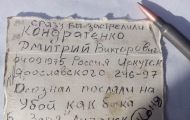 сразу вы застрелили
КОНДРАТЕНКО
ДМИТРИЙ Викторович
04091975 Россия Иркутск
Ярославского 246-97
Осознал послали на
Убой как быка